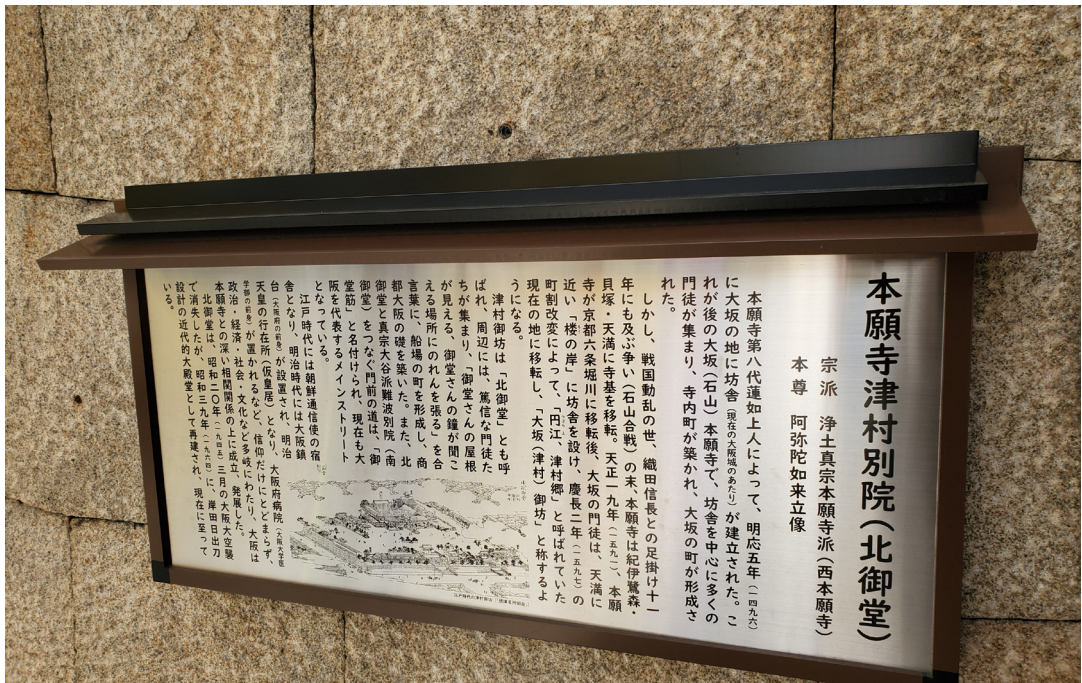 本願寺津村別院(北御堂)
宗派 浄土真宗本願寺派(西本願寺)
本尊 阿弥陀如来立像
本願寺第八代蓮如上人によって、明応五年(一四九六)
に大坂の地に坊舎(現在の大阪城のあたり)が建立された。こ
れが後の大坂(石山)本願寺で、坊舎を中心に多くの
門徒が集まり、寺内町が築かれ、大坂の町が形成さ
れた。
しかし、戦国動乱の世、織田信長との足掛け十一
年にも及ぶ争い(石山合戦)の末、本願寺は紀伊鷺森・
貝塚・天満に寺基を移転。天正一九年(一五九一)、本願
寺が京都六条堀川に移転後、大坂の門徒は、天満に
近い「楼の岸」に坊舎を設け、慶長二年(一五九七)の
町割改変によって、「円江、津村郷」と呼ばれていた
現在の地に移転し、「大坂(津村)御坊」と称するよ
うになる。
津村御坊は「北御堂」とも呼
ばれ、周辺には、篤信な門徒た
ちが集まり、「御堂さんの屋根
が見える、御堂さんの鐘が聞こ
える場所にのれんを張る」を合
言葉に、船場の町を形成し、商
都大阪の礎を築いた。また、北
御堂と真宗大谷派難波別院(南
御堂)をつなぐ門前の道は、「御
堂筋」と名付けられ、現在も大
阪を代表するメインストリート
となっている。
江戸時代には朝鮮通信使の宿
舎となり、明治時代には大阪鎮
台(大阪府の前身)が設置され、明治
天皇の行在所(仮皇居)となり、大阪府病院(大阪大学医
学部の前身)が置かれるなど、信仰だけにとどまらず、
政治・経済・社会・文化など多岐にわたり、大阪は
本願寺との深い相関関係の上に成立、発展した。
北御堂は、昭和二〇年(一九四五)三月の大阪大空襲
で消失したが、昭和三九年(一九六四)に、岸田日出刀
設計の近代的大殿堂として再建され、現在に至って
いる。